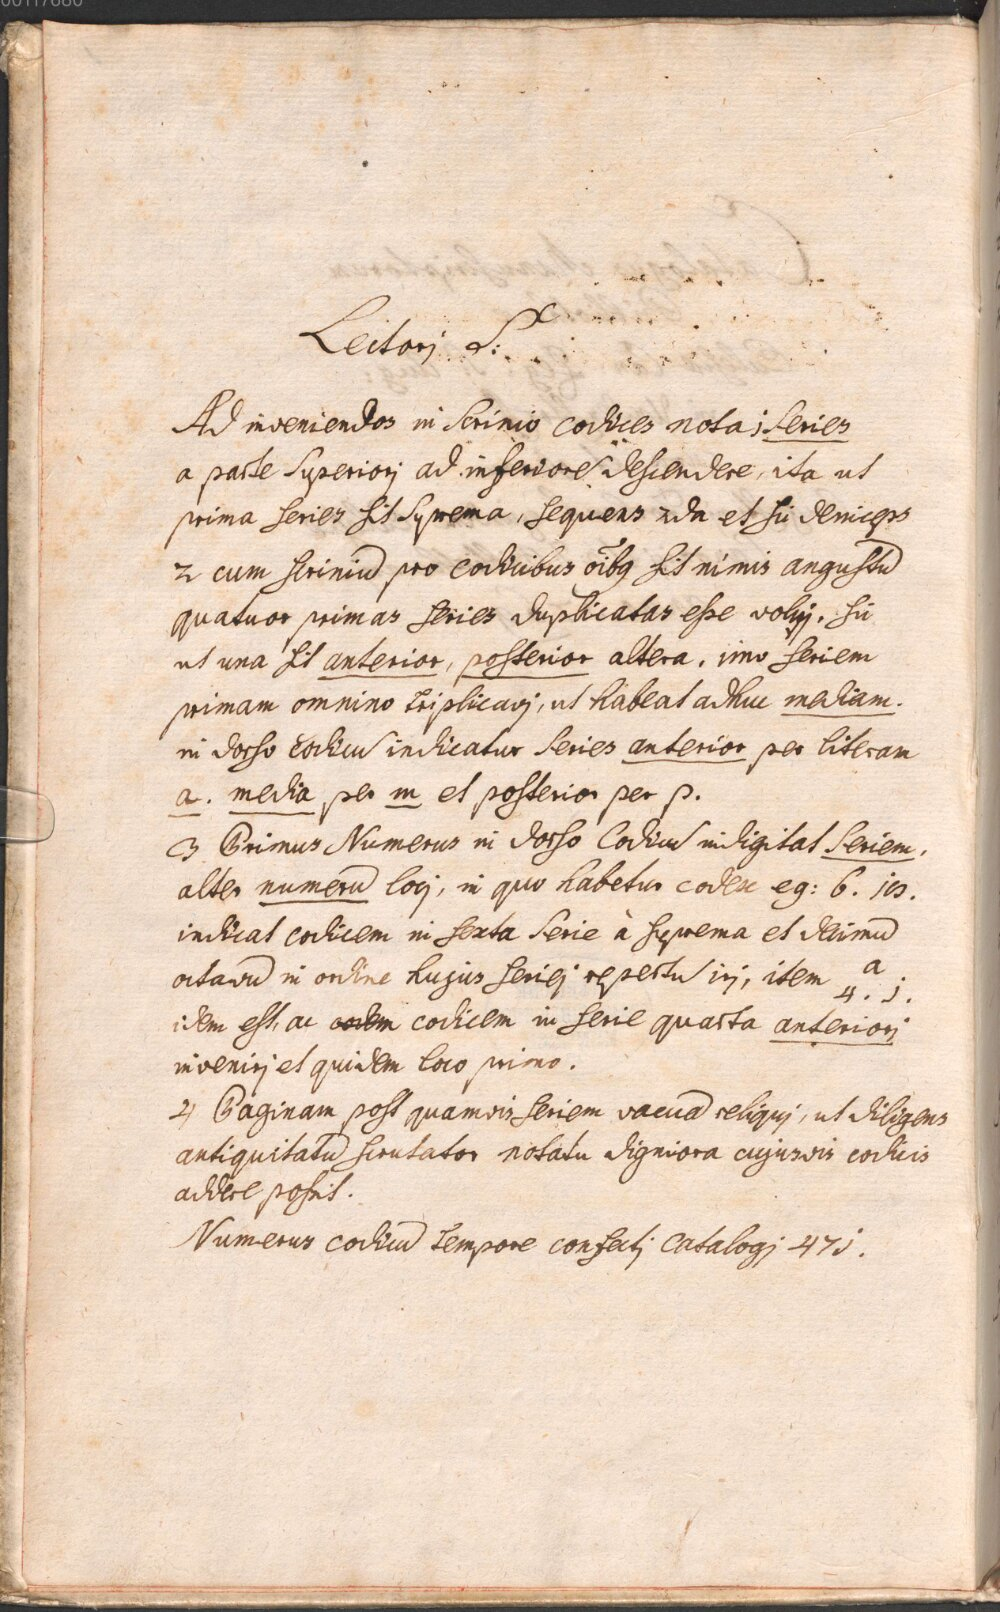 00117080
Lectorj S:
Ad inveniendos in scrinio codices nota j series
a parte superiorj ad inferiorẽ descendere, ita ut
prima series sit suprema, sequens 2da et sic deniceps
2 cum scriniũ pro codicibus oĩbq sit nimis angustũ
quatuor primas series duplicatas esse voluj. sic
ut una sit anterior, posterior altera. imo seriem
primam omnino triplicavj, ut habeat adhuc mediam.
in dorso codicis indicatur series anterior per literam
a. media per m et posterior per p.
3 Primus Numerus in dorso Codicis indigitat seriem.
alter numerũ locj, in quo habetur codex eg: 6. j8.
indicat codicem in sexta serie à suprema et decimũ
octavũ in ordine hujus seriej repertũ irj, item a 4. j.
idem est, ac codicem in serie quarta anteriorj
invenirj et quidem loco primo.
4 Paginam post quamvis seriem vacuã reliquj, ut diligens
antiquitatũ scrutator notatu digniora cujusvis codicis
addere possit.
Numerus codicũ tempore confectj catalogj 47j.